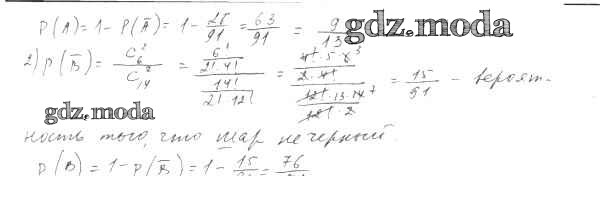 P(A) = 1 - P(Ā) = 1 - 28/91 = 63/91 = 9/13
gdz.moda
2) P(B̄) = C₆²/C₁₄² = (6!/(2!4!))/(14!/(2!12!)) = (4!·5·6³/(2·4!))/(12!·13·14⁷/(12!·2)) = 15/91 - вероят-
gdz.moda
ность того, что шар не черный.
P(B) = 1 - P(B̄) = 1 - 15/91 = 76/